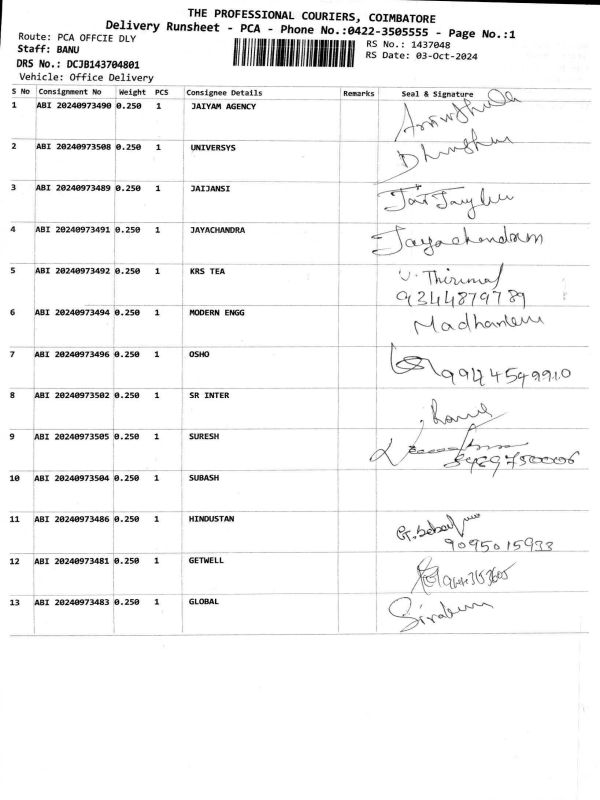 THE PROFESSIONAL COURIERS, COIMBATORE
Delivery Runsheet - PCA - Phone No.:0422-3505555 - Page No.:1
Route: PCA OFFCIE DLY
RS No.: 1437048
Staff: BANU
RS Date: 03-Oct-2024
DRS No.: DCJB143704801
Vehicle: Office Delivery
S No Consignment No Weight PCS Consignee Details Remarks Seal & Signature
1 ABI 20240973490 0.250 1 JAIYAM AGENCY
2 ABI 20240973508 0.250 1 UNIVERSYS
3 ABI 20240973489 0.250 1 JAIJANSI
4 ABI 20240973491 0.250 1 JAYACHANDRA Jayachandram
5 ABI 20240973492 0.250 1 KRS TEA V. Thirumal
9344879789
6 ABI 20240973494 0.250 1 MODERN ENGG
7 ABI 20240973496 0.250 1 OSHO
8 ABI 20240973502 0.250 1 SR INTER
9 ABI 20240973505 0.250 1 SURESH
10 ABI 20240973504 0.250 1 SUBASH
11 ABI 20240973486 0.250 1 HINDUSTAN
9095015933
12 ABI 20240973481 0.250 1 GETWELL
13 ABI 20240973483 0.250 1 GLOBAL